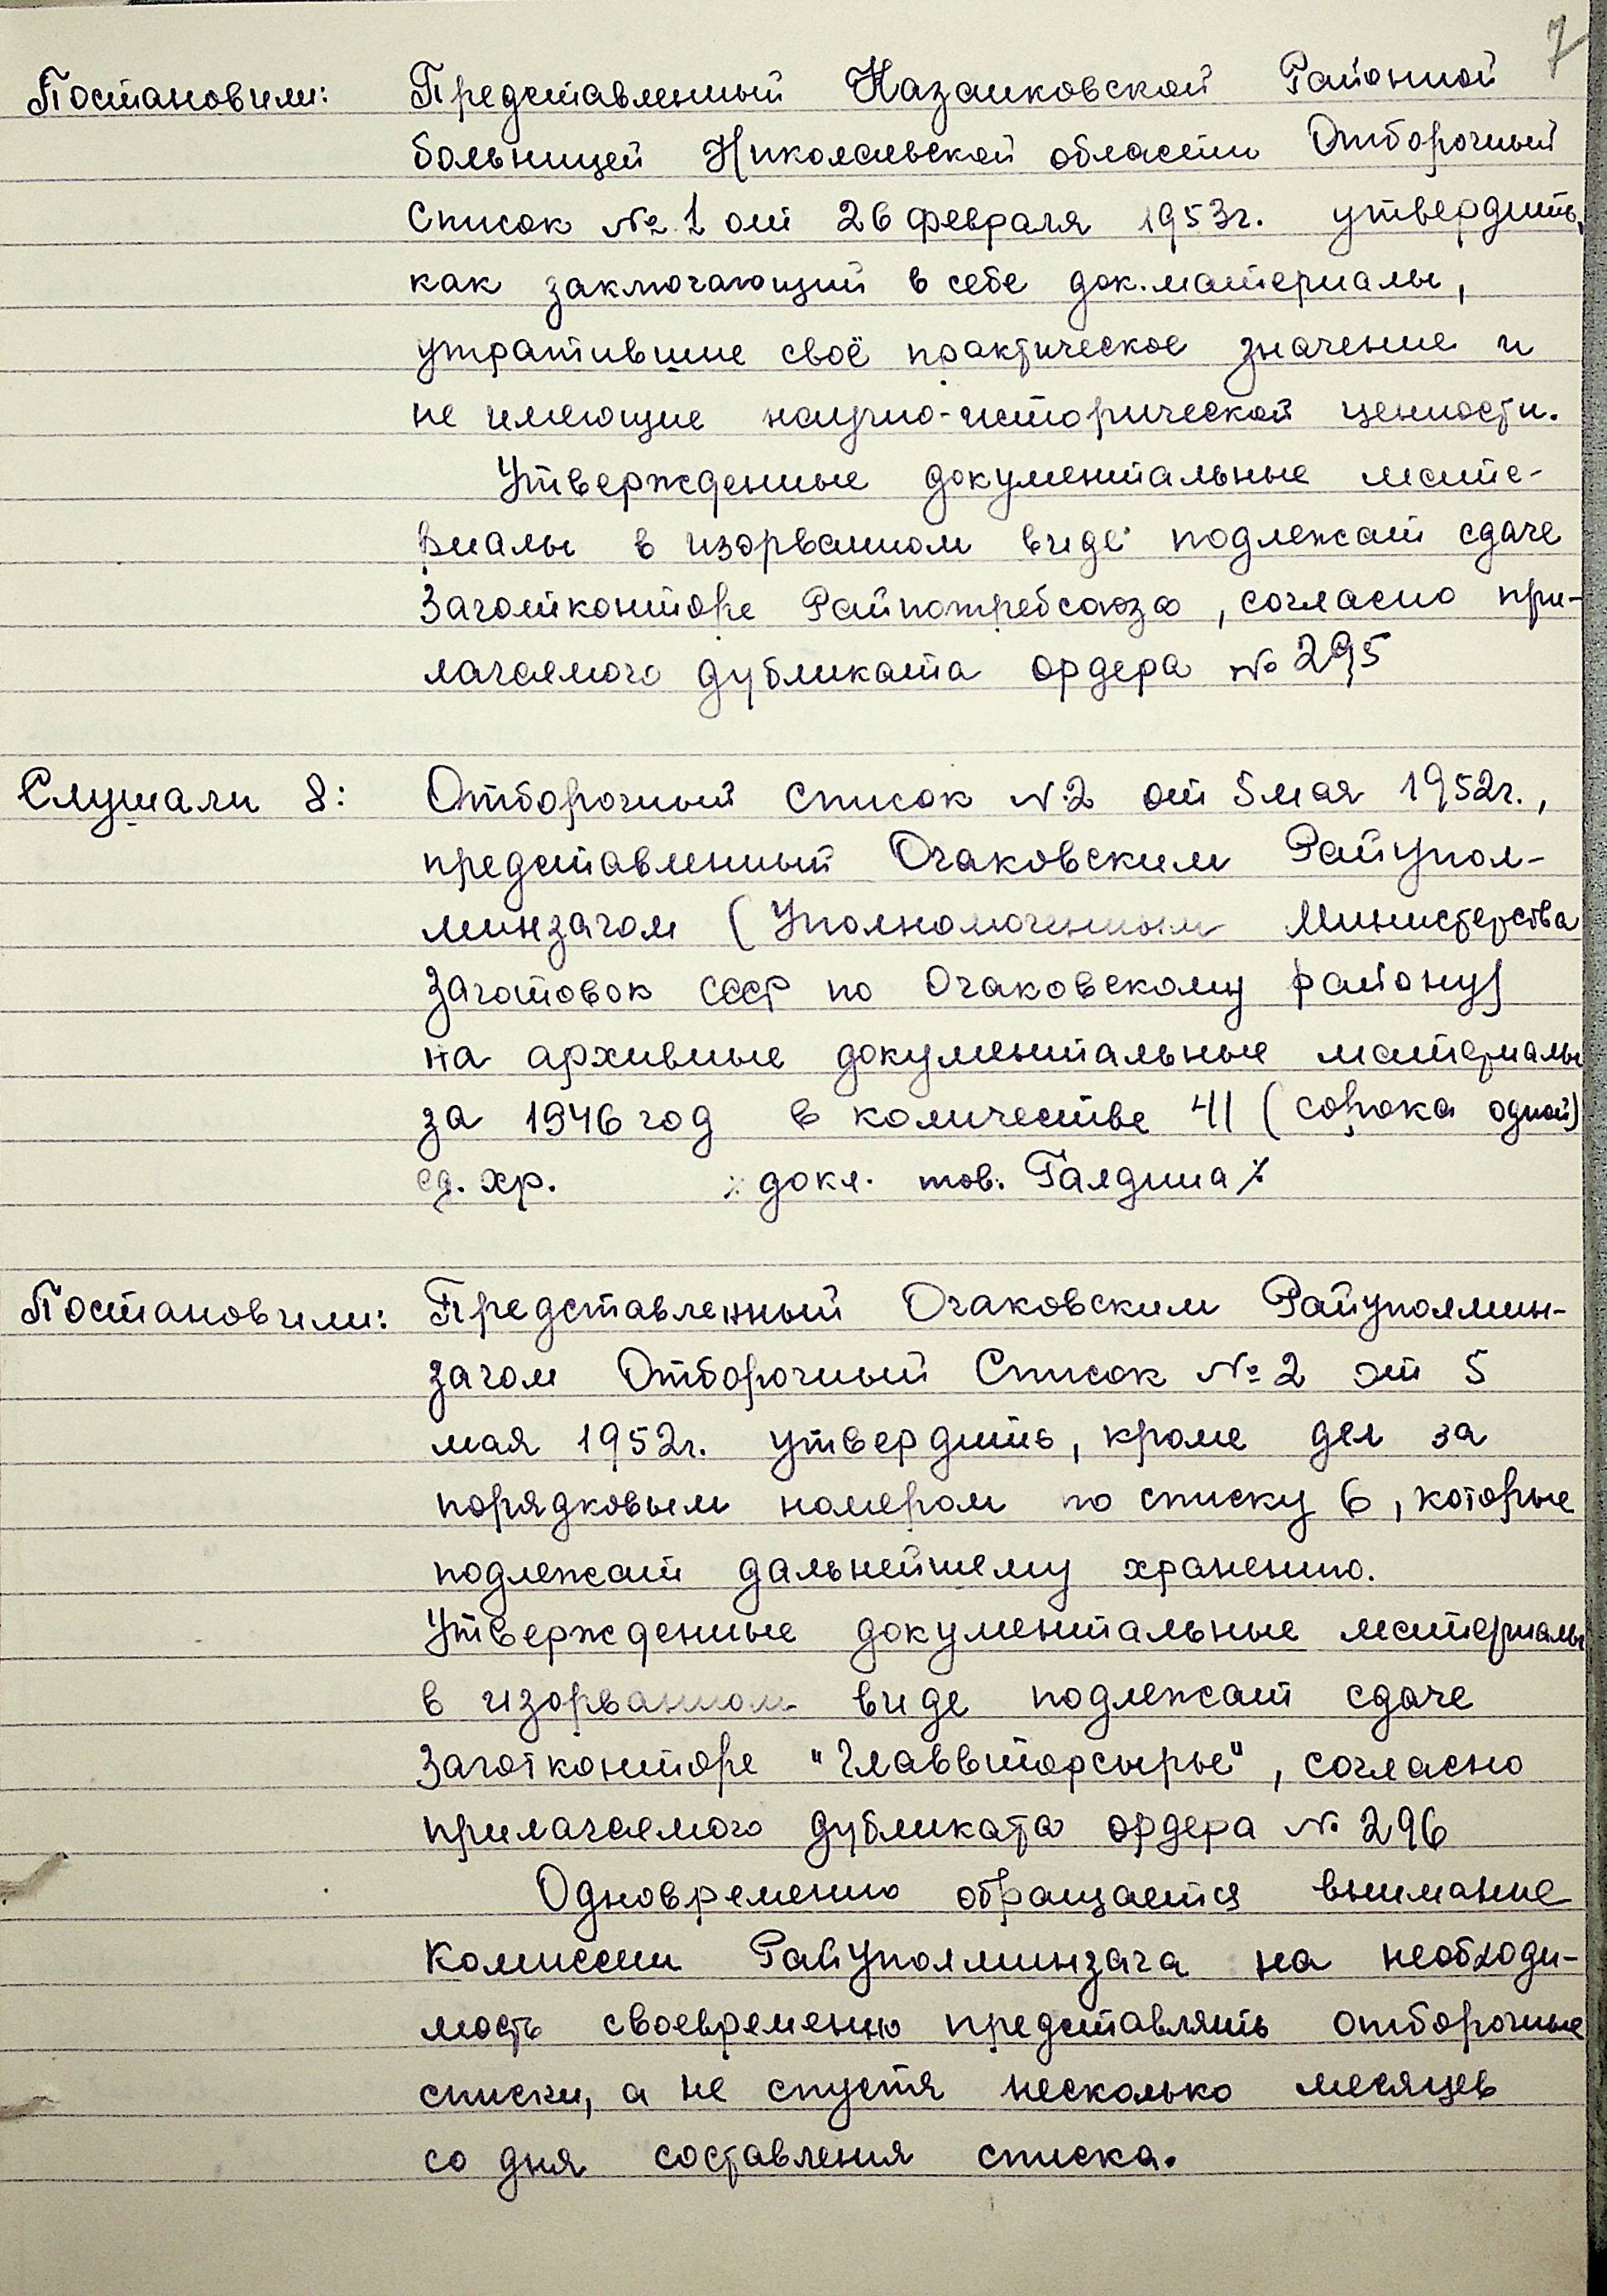 7
Постановили: Представленный Казанковской Районной
больницей Николаевской области Отборочный
Список № 1 от 26 февраля 1953г. утвердить,
как заключающий в себе док. материалы,
утратившие своё практическое значение и
не имеющие научно-исторической ценности.
Утвержденные документальные мате-
риалы в изорванном виде подлежат сдаче
Заготконторе Райпотребсоюза, согласно при-
лагаемого дубликата ордера № 295
Слушали 8: Отборочный список №2 от 5 мая 1952г.,
представленный Очаковским Райупол-
минзагом (Уполномоченным Министерства
Заготовок СССР по Очаковскому району)
на архивные документальные материалы
за 1946 год в количестве 41 (сорока одной)
ед. хр. % докл. тов. Галдина %
Постановили: Представленный Очаковским Райуполмин-
загом Отборочный Список № 2 от 5
мая 1952г. утвердить, кроме дел за
порядковым номером по списку 6, которые
подлежат дальнейшему хранению.
Утвержденные документальные материалы
в изорванном виде подлежат сдаче
Заготконторе "Главвторсырье", согласно
прилагаемого дубликата ордера № 296
Одновременно обращается внимание
Комиссии Райуполминзага на необходи-
мость своевременно представлять отборочные
списки, а не спустя несколько месяцев
со дня составления списка.